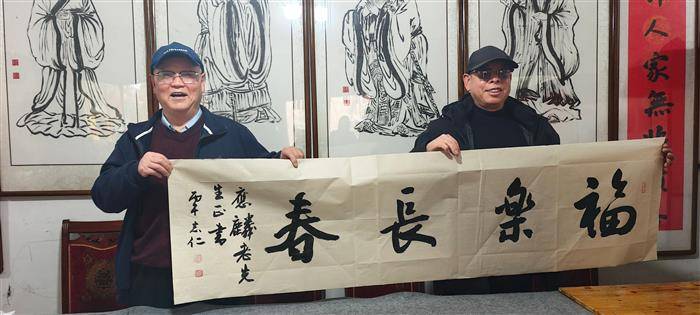 人家無
福樂長春
應麟老先
生正書
丙午志仁